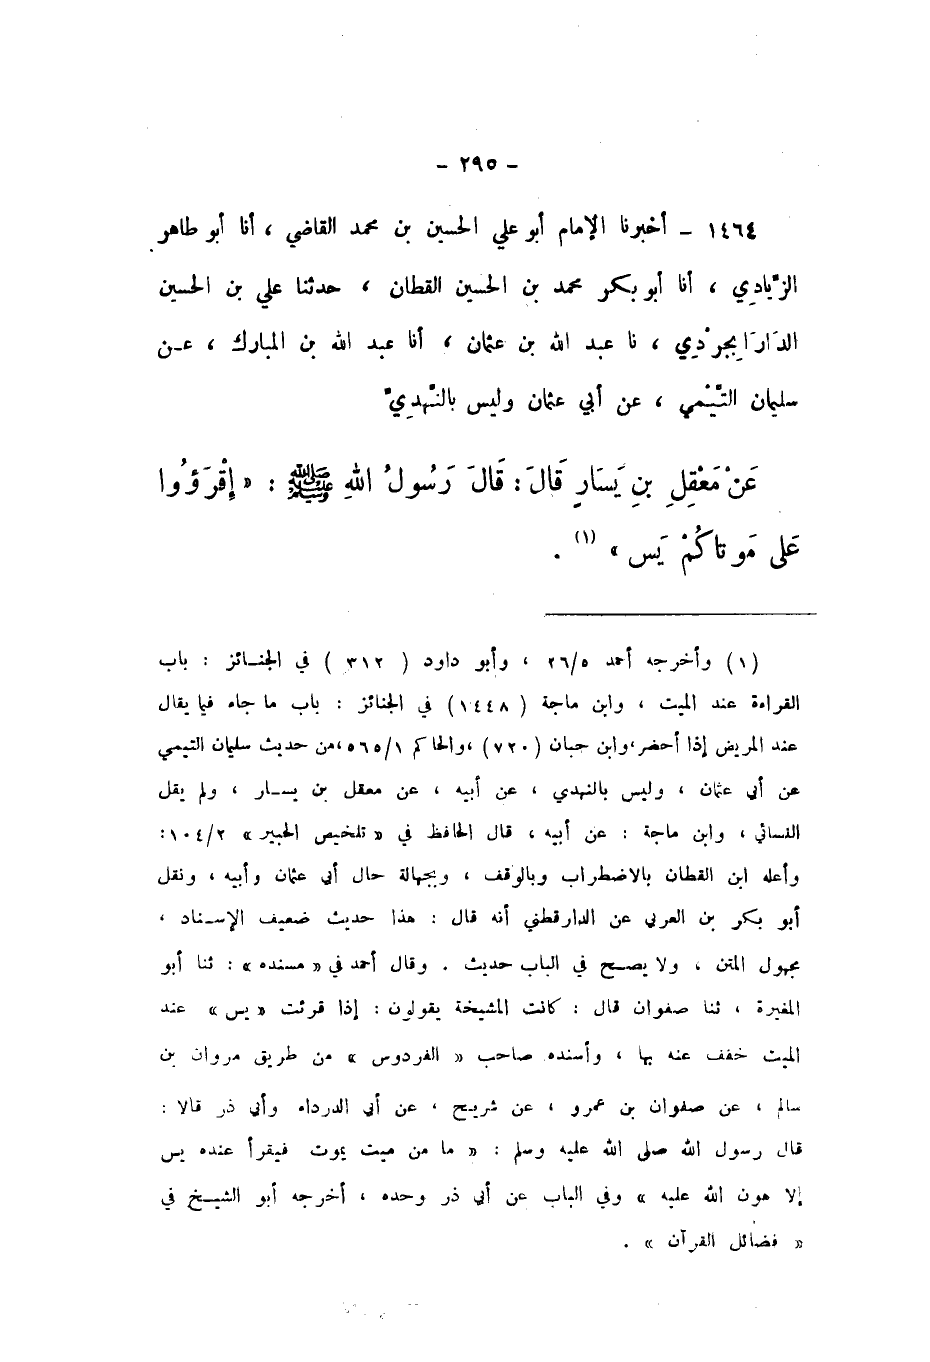 - ٢٩٥ -
١٤٦٤ - أخبرنا الإمام أبو علي الحسين بن محمد القاضي ، أنا أبو طاهر
الزّيادِي ، أنا أبو بكر محمد بن الحسين القطان ، حدثنا علي بن الحسين
الدَّارَابِجرْدِي ، نا عبد الله بن عثمان ، أنا عبد الله بن المبارك ، عـن
سليمان التَّيْمي ، عن أبي عثمان وليس بالنَّهدِيّ
عَنْ مَعْقِلِ بنِ يَسَارٍ قَالَ : قَالَ رَسُولُ اللهِ ﷺ : « إقْرَؤُوا
عَلى مَوتاكُمْ يَس » (١) .
(١) وأخرجه أحمد ٢٦/٥ ، وأبو داود ( ٣١٢١ ) في الجنـائز : باب
القراءة عند الميت ، وابن ماجة ( ١٤٤٨) في الجنائز : باب ما جاء فيما يقال
عند المريض إذا أحضر ، وابن حبان (٧٢٠) ، والحاكم ٥٦٥/١ ، من حديث سليمان التيمي
عن أبي عثمان ، وليس بالنهدي ، عن أبيه ، عن معقل بن يسـار ، ولم يقل
النسائي ، وابن ماجة : عن أبيه ، قال الحافظ في « تلخيص الحبير » ١٠٤/٢ :
وأعله ابن القطان بالاضطراب وبالوقف ، وبجهالة حال أبي عثمان وأبيه ، ونقل
أبو بكر بن العربي عن الدارقطني أنه قال : هذا حديث ضعيف الإسـناد ،
مجهول المتن ، ولا يصـح في الباب حديث . وقال أحمد في « مسنده » : ثنا أبو
المغيرة ، ثنا صفوان قال : كانت المشيخة يقولون : إذا قرئت « يس » عند
الميت خفف عنه بها ، وأسنده صاحب « الفردوس » من طريق مروان بن
سالم ، عن صفوان بن عمرو ، عن شريح ، عن أبي الدرداء وأبي ذر قالا :
قال رسول الله صلى الله عليه وسلم : « ما من ميت يموت فيقرأ عنده يس
إلا هون الله عليه » وفي الباب عن أبي ذر وحده ، أخرجه أبو الشيـخ في
« فضائل القرآن » .